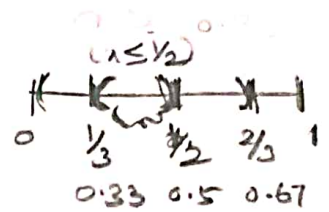 (x≤1/2)
0 1/3 1/2 2/3 1
0.33 0.5 0.67